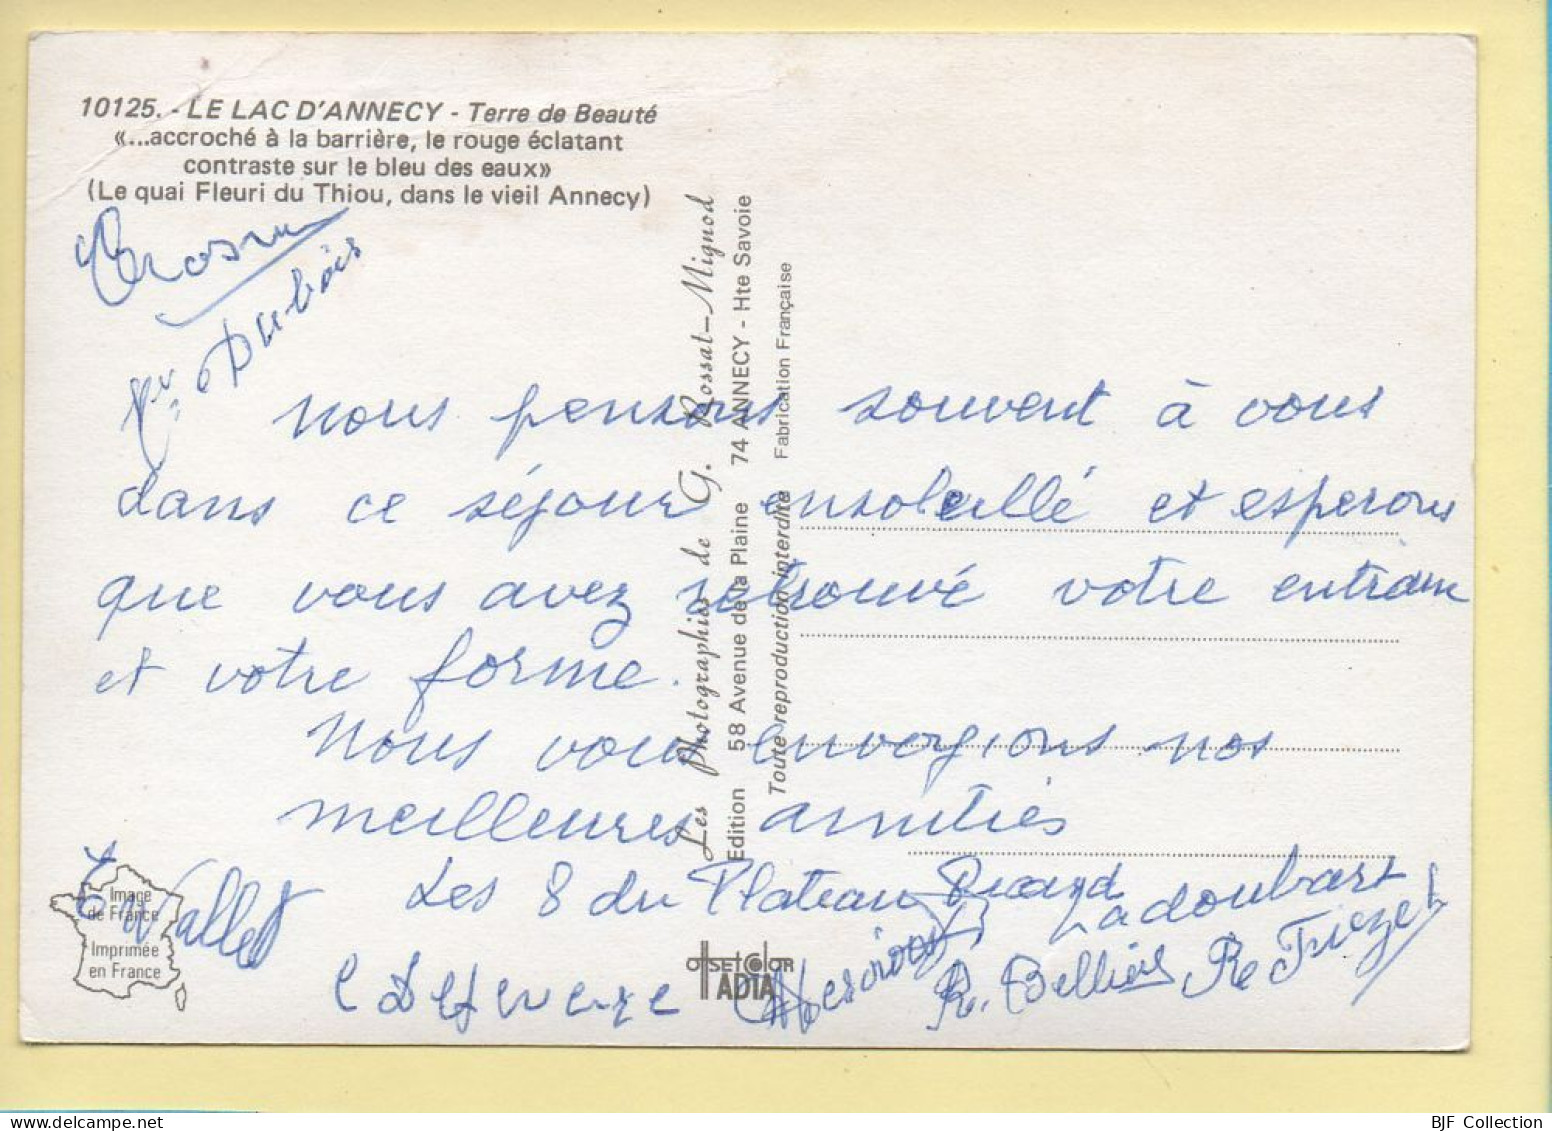 10125. - LE LAC D'ANNECY - Terre de Beauté
«...accroché à la barrière, le rouge éclatant
contraste sur le bleu des eaux»
(Le quai Fleuri du Thiou, dans le vieil Annecy)
Dubois
nous pensons souvent à vous
dans ce séjour ensoleillé et esperons
que vous avez retrouvé votre entrain
et votre forme.
Nous vous envoyions nos
meilleures amitiés
Les 8 du Plateau
E Vallet
Ladoubart
R. Bellier
Les Photographies de G. Rossat-Mignod
Edition 58 Avenue de la Plaine 74 ANNECY - Hte Savoie
Toute reproduction interdite Fabrication Française
Image
de France
Imprimée
en France
OffSEt COlOR
ADIA
BJF Collection